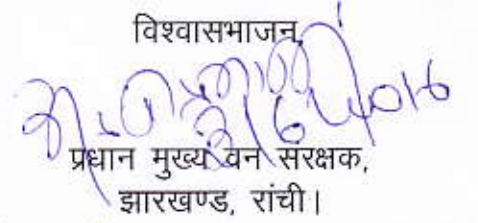 विश्वासभाजन
प्रधान मुख्य वन संरक्षक,
झारखण्ड, रांची।